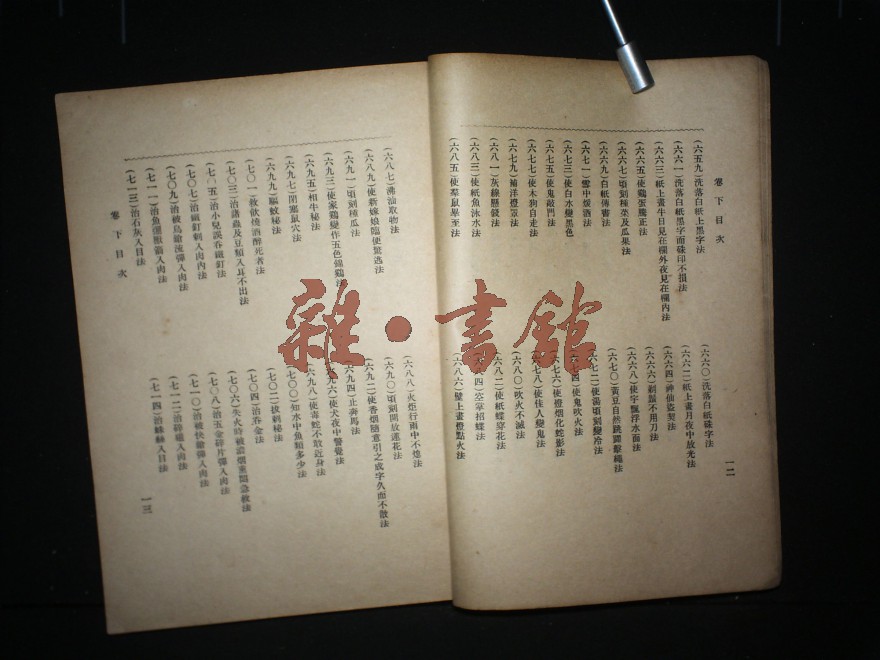 卷下目次
(六五九)洗落白紙上黑字法
(六六一)洗落白紙黑字而硃印不損法
(六六三)紙上畫牛日見在欄外夜見在欄內法
(六六五)使鷄蛋騰正法
(六六七)頃刻種菜及瓜果法
(六六九)白紙傳書法
(六七一)雪中煖酒法
(六七三)使白水變黑色
(六七五)使鬼敲門法
(六七七)使木狗自走法
(六七九)補洋燈罩法
(六八一)灰線懸錢法
(六八三)使紙魚泳水法
(六八五)使羣鼠畢至法
(六六〇)洗落白紙硃字法
(六六二)紙上畫月夜中放光法
(六六四)神仙盜契法
(六六六)剃鬚不用刀法
(六六八)使字飄浮水面法
(六七〇)黃豆自然跳躍擊繩法
(六七二)使湯頃刻變冷法
(六七四)使鬼吹火法
(六七六)使燈烟化蛇影法
(六七八)使佳人變鬼法
(六八〇)吹火不滅法
(六八二)使紙蝶穿花法
(六八四)空掌招蝶法
(六八六)壁上畫燈點火法
一二
(六八七)沸油取物法
(六八九)使新嫁娘臨便驚逃法
(六九一)頃刻種瓜法
(六九三)使家鷄變作五色錦鷄法
(六九五)相牛秘法
(六九七)閉塞鼠穴法
(六九九)驅蚊秘法
(七〇一)救飲燒酒醉死者法
(七〇三)治諸蟲及豆類入耳不出法
(七〇五)治小兒誤吞鐵釘法
(七〇七)治鐵釘刺入肉內法
(七〇九)治被鳥鎗流彈入肉法
(七一一)治魚運獸鎗入肉法
(七一三)治石灰入目法
卷下目次
(六八八)火炬行雨中不熄法
(六九〇)頃刻開放蓮花法
(六九二)使香烟隨意引之成字久而不散法
(六九四)止奔馬法
(六九六)使犬夜中警覺法
(六九八)使毒蛇不敢近身法
(七〇〇)知水中魚類多少法
(七〇二)拔刺秘法
(七〇四)治吞金法
(七〇六)失火時被濃烟熏悶急救法
(七〇八)治五金碎片彈入肉法
(七一〇)治被快鎗彈入肉法
(七一二)治碎磁入肉法
(七一四)治蛛絲入目法
一三
雜·書館